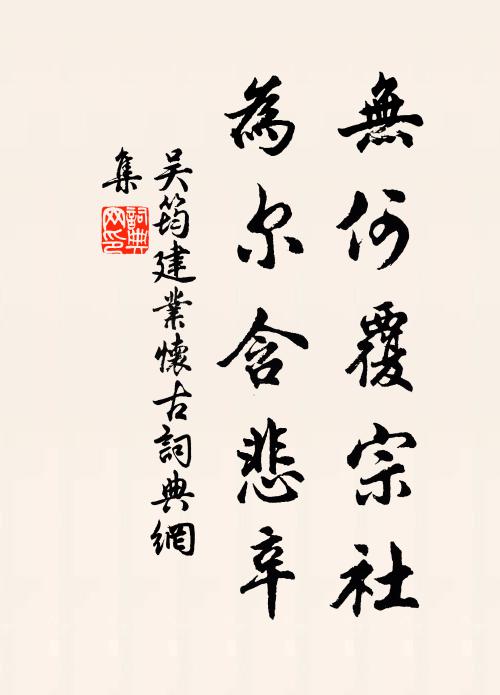 無何覆宗社
為尔含悲辛
吴筠建業懷古詞典網
集
詞典
网印